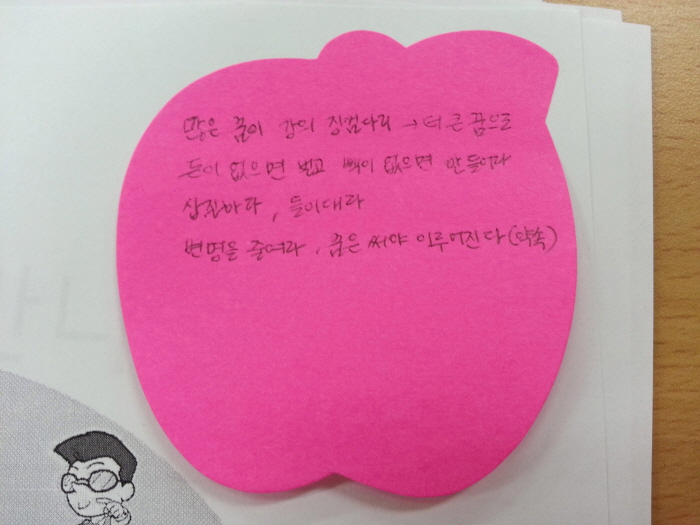 많은 꿈이 강의 징검다리 → 더 큰 꿈으로
돈이 없으면 벌고 빽이 없으면 만들어라
삽질하다, 들이대라
변명을 줄여라, 꿈은 써야 이루어진다(약속)